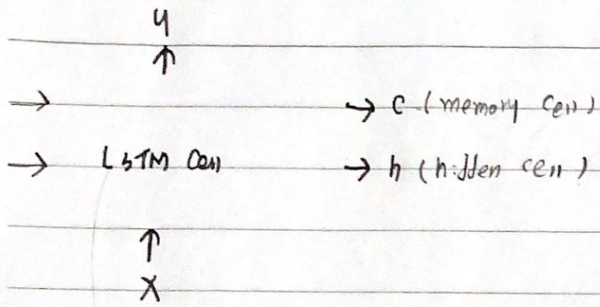 y
↑
→ → C (memory Cell)
→ LSTM Cell → h (hidden cell)
↑
X